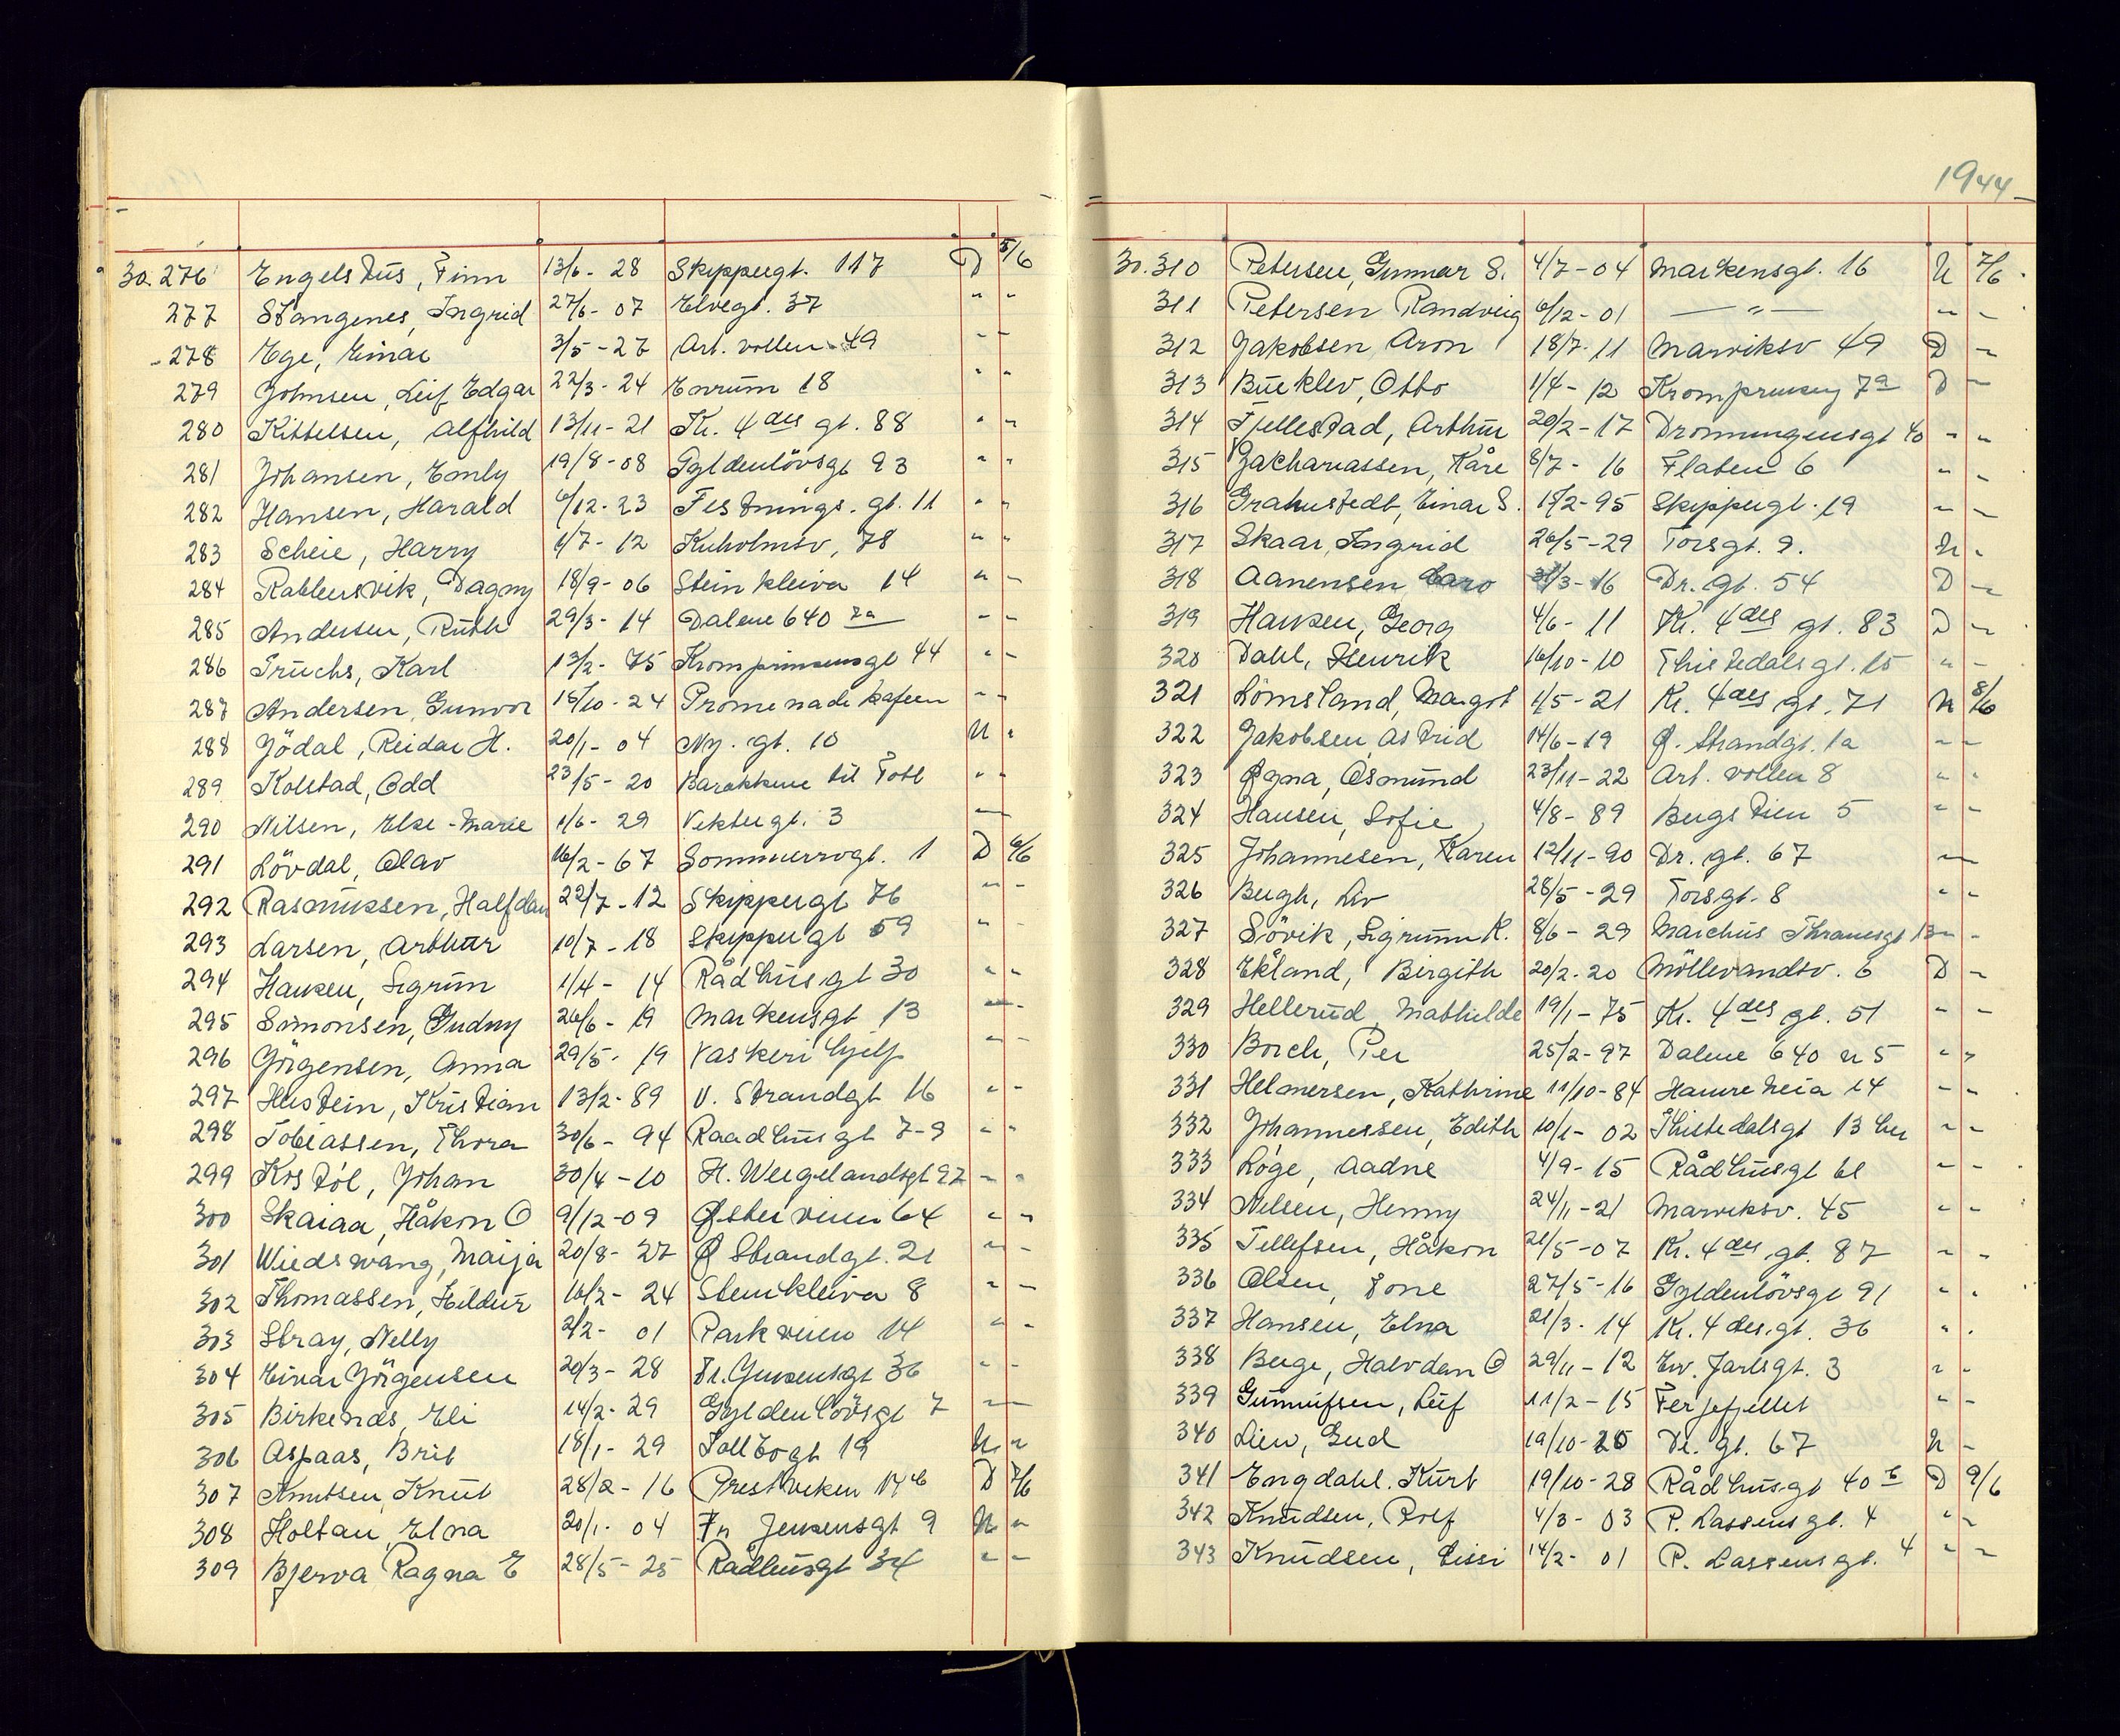 30.276 Engelstus, Finn 13/6 - 28 Skippergt. 117 D 5/6
277 Stangenes, Ingrid 27/6 - 07 Elvegt. 37 " "
278 Ege, Einar 3/5 - 27 Arb. vollen 49 " "
279 Johnsen, Leif Edgar 22/3 - 24 Enrum 18 " "
280 Kittelsen, Alfhild 13/11 - 21 Kr. 4des gt. 88 " "
281 Johansen, Emly 19/8 - 08 Gyldenlövsgt 93 " "
282 Hansen, Harald 6/12 - 23 Festnings. gt. 11 " "
283 Scheie, Harry 1/7 - 12 Kuholmsv, 78 " "
284 Dagny 18/9 - 06 Steinkleiva 14 " "
285 Andersen, Ruth 29/3 - 14 Dalene 640 7a " "
286 Truchs, Karl 13/2 - 75 Kromprinsensgt 44 " "
287 Andersen, Gunvor 18/10 - 24 Promenadekafeen " "
288 Jödal, Reidar H. 20/1 - 04 Ny. gt. 10 U "
289 Kolstad, Odd 23/5 - 20 Barakkene til Totl " "
290 Nilsen, Else-Marie 1/6 - 29 Vektergt. 3 "
291 Lövdal, Olav 16/2 - 67 Sommerrogt. 1 D 6/6
292 Rasmussen, Halfdan 22/7 - 12 Skippergt 76 " "
293 Larsen, Arthur 10/7 - 18 Skippergt 59 " "
294 Hansen, Sigrun 1/4 - 14 Rådhusgt 30 " "
295 Simonsen, Gudny 26/6 - 19 Markensgt 13 " "
296 Jörgensen, Anna 29/5 - 19 Vaskerihjelp " "
297 Hustein, Kristian 13/2 - 89 V. Strandgt 16 " "
298 Tobiassen, Thora 30/6 - 94 Raadhusgt 7-9 " "
299 Kostöl, Johan 30/4 - 10 H. Wergelandsgt 92 " "
300 Skaiaa, Håkon O 9/12 - 09 Østerveien 64 " "
301 Wiedswang, Maija 20/8 - 27 Ø Strandgt. 21 " "
302 Thomassen, Hildur 16/2 - 24 Stenkleiva 8 " "
303 Stray, Nelly 2/2 - 01 Parkveien 14 " "
304 Einar Jörgensen 20/3 - 28 Fr. Jensensgt 36 " "
305 Birkends, Eli 14/2 - 29 Gyldenlövsgt 7 " "
306 Aspaas, Brit 18/1 - 29 Tollbogt 19 U "
307 Knutsen, Knut 28/2 - 16 Prestviken 14 b D 7/6
308 Holtan, Elna 20/1 - 04 Fr Jensensgt 9 U "
309 Bjerva Ragna E 28/5 - 25 Rådhusgt 34 " "
1944
30.310 Petersen, Gunnar S. 4/7 - 04 Markensgt. 16 U 7/6
311 Petersen Randveig 6/12 - 01 — " — " "
312 Jakobsen Aron 18/7 - 11 Marviksv 49 D "
313 Bueklev, Otto 1/4 - 12 Kromprinseng 7a D "
314 Fjellestad, Arthur 20/2 - 17 Dronningensgt 40 " "
315 Zachariassen, Kåre 8/7 - 16 Flaten 6 " "
316 Grahnstedt, Einar S. 15/2 - 95 Skippergt. 19 " "
317 Skaar, Ingrid 26/5 - 29 Torsgt. 9. U "
318 Aanensen Caro 31/3 - 16 Dr. gt. 54 D "
319 Hansen, Georg 4/6 - 11 Kr. 4des gt. 83 D "
320 Dahl, Henrik 16/10 - 10 Thistedalsgt. 15 " "
321 Lömsland, Margot 1/5 - 21 Kr. 4des gt. 71 U 8/6
322 Jakobsen, Astrid 14/6 - 19 Ø. Strandgt. 1a " "
323 Øgna, Osmund 23/11 - 22 Arb. vollen 8 " "
324 Hansen, Sofie 4/8 - 89 Bergstien 5 " "
325 Johannesen, Karen 12/11 - 90 Dr. gt. 67 "
326 Bergh, Liv 28/5 - 29 Torsgt. 8 " "
327 Sövik, Sigrunn K. 8/6 - 29 Marchus Thranesgt 13 " "
328 Ekland, Birgith 20/2 - 20 Möllevandsv. 6 D "
329 Hellerud, Mathilde 19/1 - 75 Kr. 4des gt. 51 " "
330 Borch, Per 25/2 - 97 Dalene 640 n 5 " "
331 Helmersen, Kathrine 11/10 - 84 Hamreheia 14 " "
332 Johannessen, Edith 10/1 - 02 Thistedalsgt 13 " "
333 Løge, Aadne 4/9 - 15 Rådhusgt 61 " "
334 Nilsen, Henny 24/11 - 21 Marviksv. 45 " "
335 Tellefsen, Håkon 21/5 - 07 Kr. 4des gt. 87 " "
336 Olsen, Tone 27/5 - 16 Gyldenlövsgt 91 " "
337 Hansen, Elna 21/3 - 14 Kr. 4des gt. 36 " "
338 Berge, Halvdan O 29/11 - 12 Erv. Jarlsgt. 3 " "
339 Gunnufsen, Leif 11/2 - 15 Ferjefjellet " "
340 Lien, Gud 19/10 - 26 Dr. gt. 67 U "
341 Engdahl. Kurt 19/10 - 28 Rådhusgt 40 b D 9/6
342 Knudsen, Rolf 4/3 - 03 P. Lassens gt. 4 " "
343 Knudsen, Lissi 14/2 - 01 P. Lassens gt. 4 " "